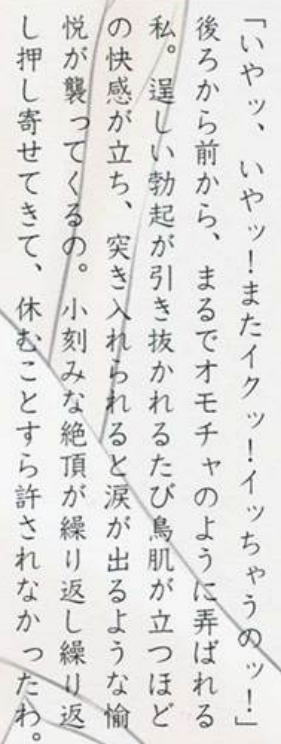 「いやッ、いやッ！またイクッ！イッちゃうのッ！」
後ろから前から、まるでオモチャのように弄ばれる
私。逞しい勃起が引き抜かれるたび鳥肌が立つほど
の快感が立ち、突き入れられると涙が出るような愉
悦が襲ってくるの。小刻みな絶頂が繰り返し繰り返
し押し寄せてきて、休むことすら許されなかったわ。